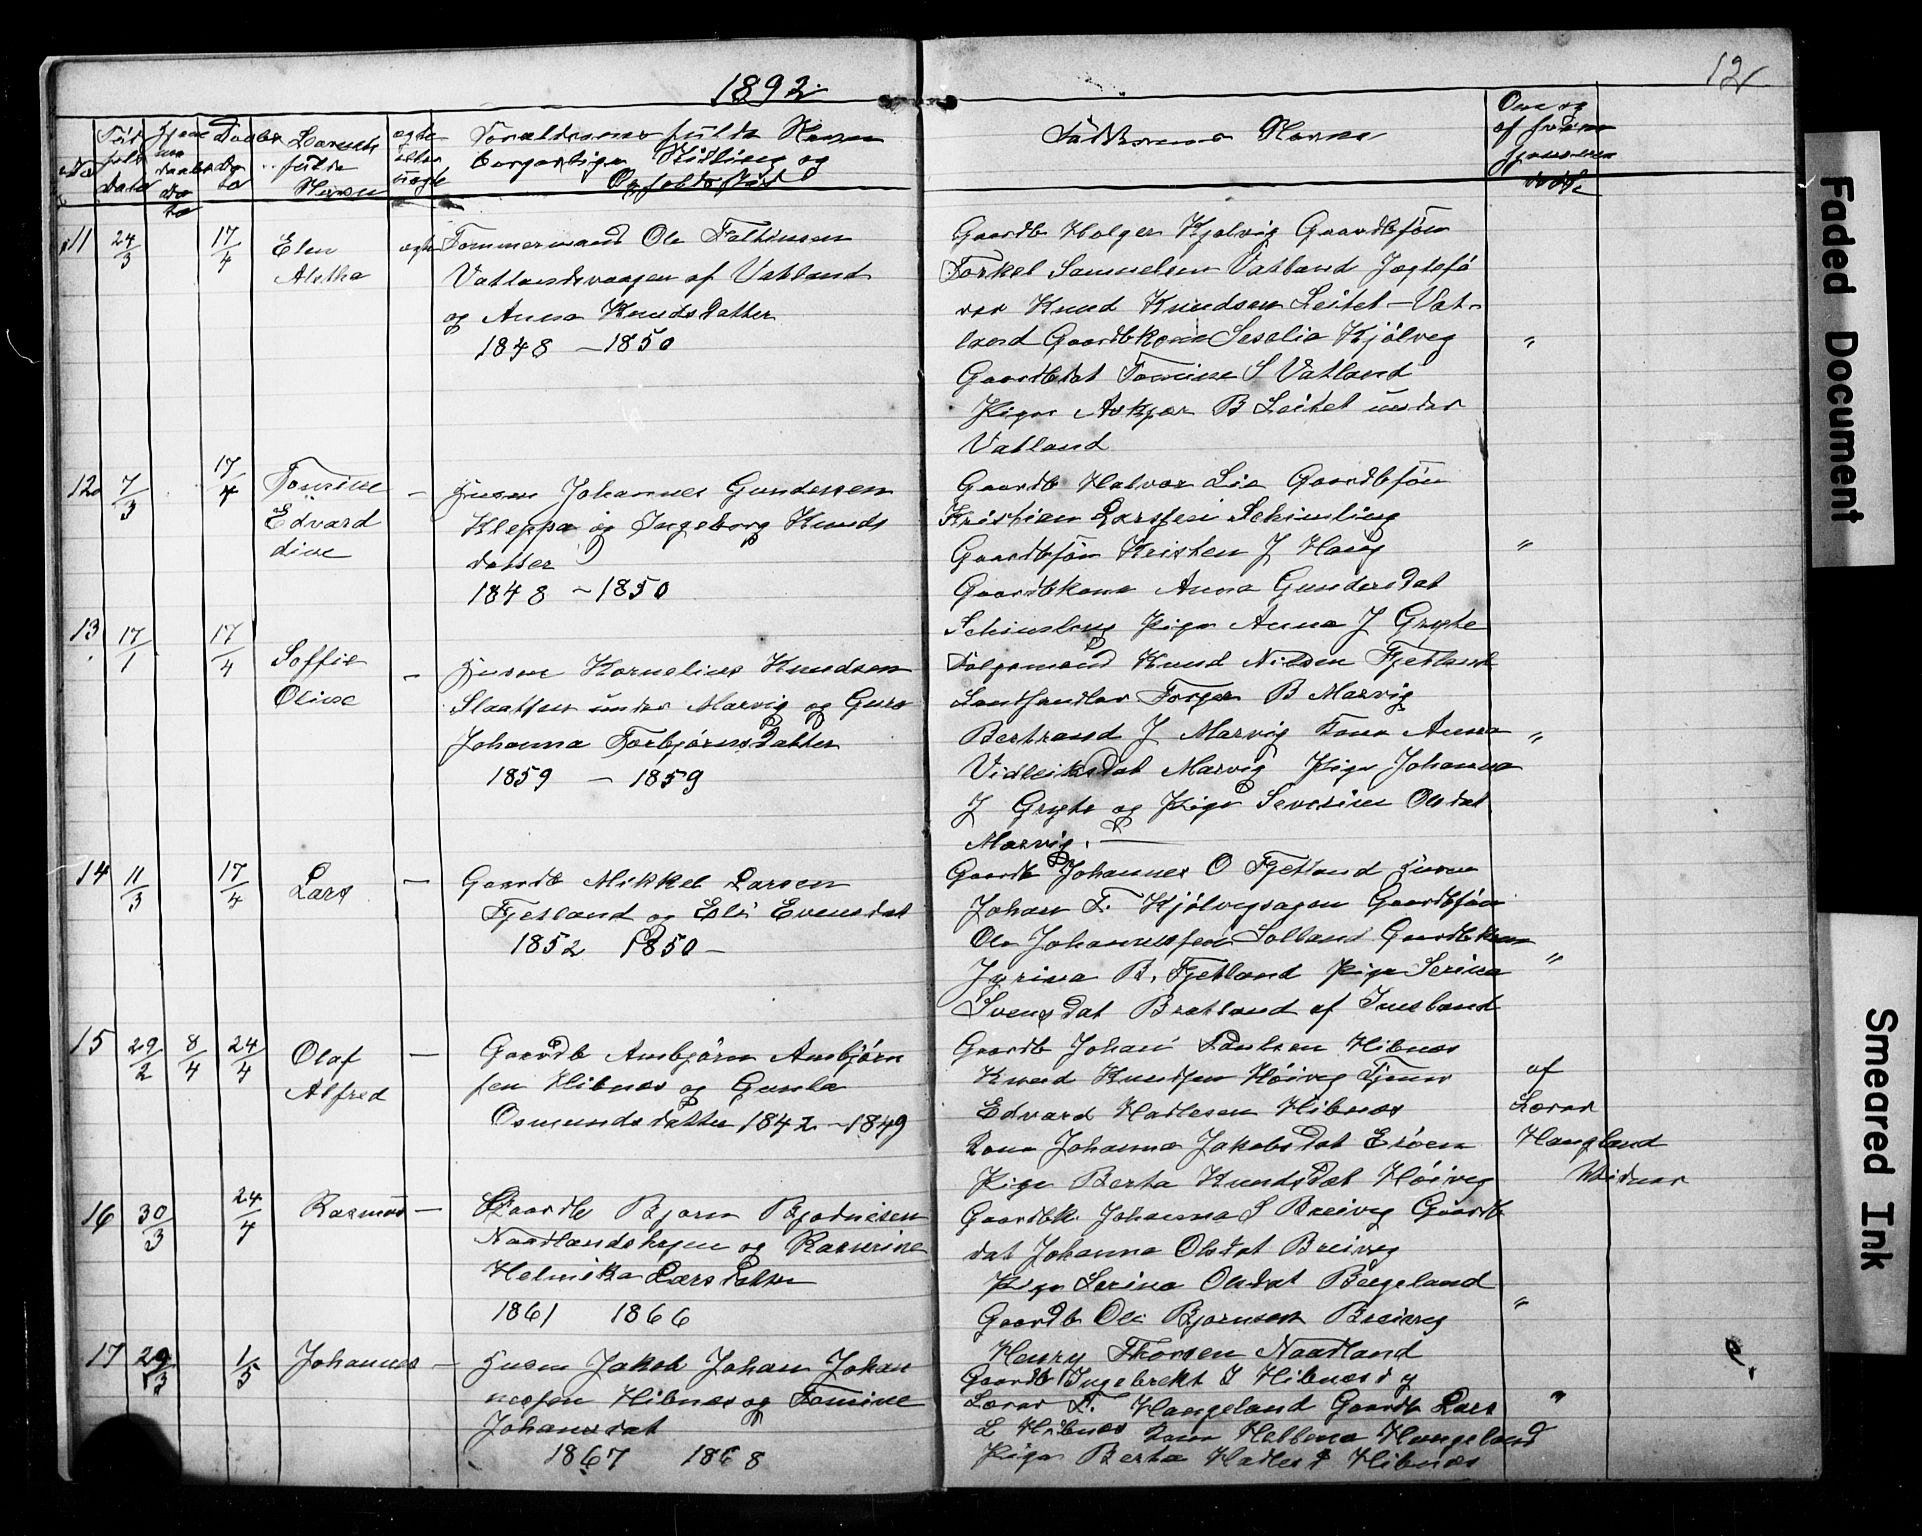 1892.
12
Fadderernes Navne
Barnets
fulde
Navn
Forældrenes fulde Navn
borgerlige Stilling og
Opholdssted
11 24/3 17/4 Elen Aletha ægte
Tømmermand Ole Faltinsen
Vatlandsvaagen af Vatland
og Anna Knudsdatter
1848 – 1850
Gaardb Holger Kjølvig Gaardbsøn
Torkel Samuelsen Vatland Jægtefø
rer Knud Knudsen Leitet – Vat-
land Gaardbkone Seselia Kjølveg
Gaardbdat Tomine S Vatland
Pige Askjær B Leitet under
Vatland
"
12 7/3 17/4 Tomine Edvarddine –
Husm Johannes Gundersen
Kleppa og Ingeborg Knuds
datter
1848 – 1850
Gaardb Halvor Lie Gaardbsøn
Kristian Larssen
Gaardbsøn Kristen J Haug
Gaardbkone Anna Gundersdat
Pige Anna J Gryte
"
13 17/1 17/4 Soffie Oline –
Husm Kornelius Knudsen
Slaatten under Marvig og Guro
Johanna Torbjørnsdatter
1859 – 1859
Følgemand Knud Nilsen Fjetland
Landhandler Torger B Marvig
Bertrand J Marvig Kone Anna
Vidleiksdat Marvig Pige Johanna
J Gryte og Pige Severine Olsdat
Marvig. –
"
14 11/3 17/4 Lars –
Gaardb Mikkel Larsen
Fjetland og Eli Evensdat
1852 1850 –
Gaardb Johannes O Fjetland Husm
Johan T. Kjølvegsagen Gaardbsøn
Ole Johannessen Solland Gaardbkone
Jorina B. Fjetland Pige Serina
Svensdat Bratland af Imsland
"
15 29/2 8/4 24/4 Olaf Alfred –
Gaardb Ambjørn Ambjørn
sen Hibnes og Gunla
Osmundsdatter 1842 – 1849
Gaardb Johan Paulsen Hibnes
Knud Knudsen Høiveg Tjener
Edvard Hadlesen Hibnes
Kone Johanna Jakobsdat Erøen
Pige Berta Knudsdat Høiveg
af
Lærer
Haugland
16 30/3 24/4 Rasmus –
Gaardb Bjørn Bjødnesen
Naadlandshagen og Rasmine
Helmika Larsdatter
1861 1866
Gaardbk. Johanna S Breiveg Gaardb
dat Johanna Olsdat Breiveg
Pige Serina Olsdat Bergeland
Gaardb Ole Bjørnsen Breiveg
Henry Thorsen Naadland
"
17 29/3 1/5 Johannes –
Husm Jakob Johan Johan
nessen Hibnes og Tomine
Johansdat
1867 1868
Gaardb Ingebrekt I Hibnes og
Lærer T. Haugeland Gaardb Lars
L Hibnes Kone Hellena Haugeland
Pige Berta Hadlesd Hibnes
"
Faded Document
Smeared Ink